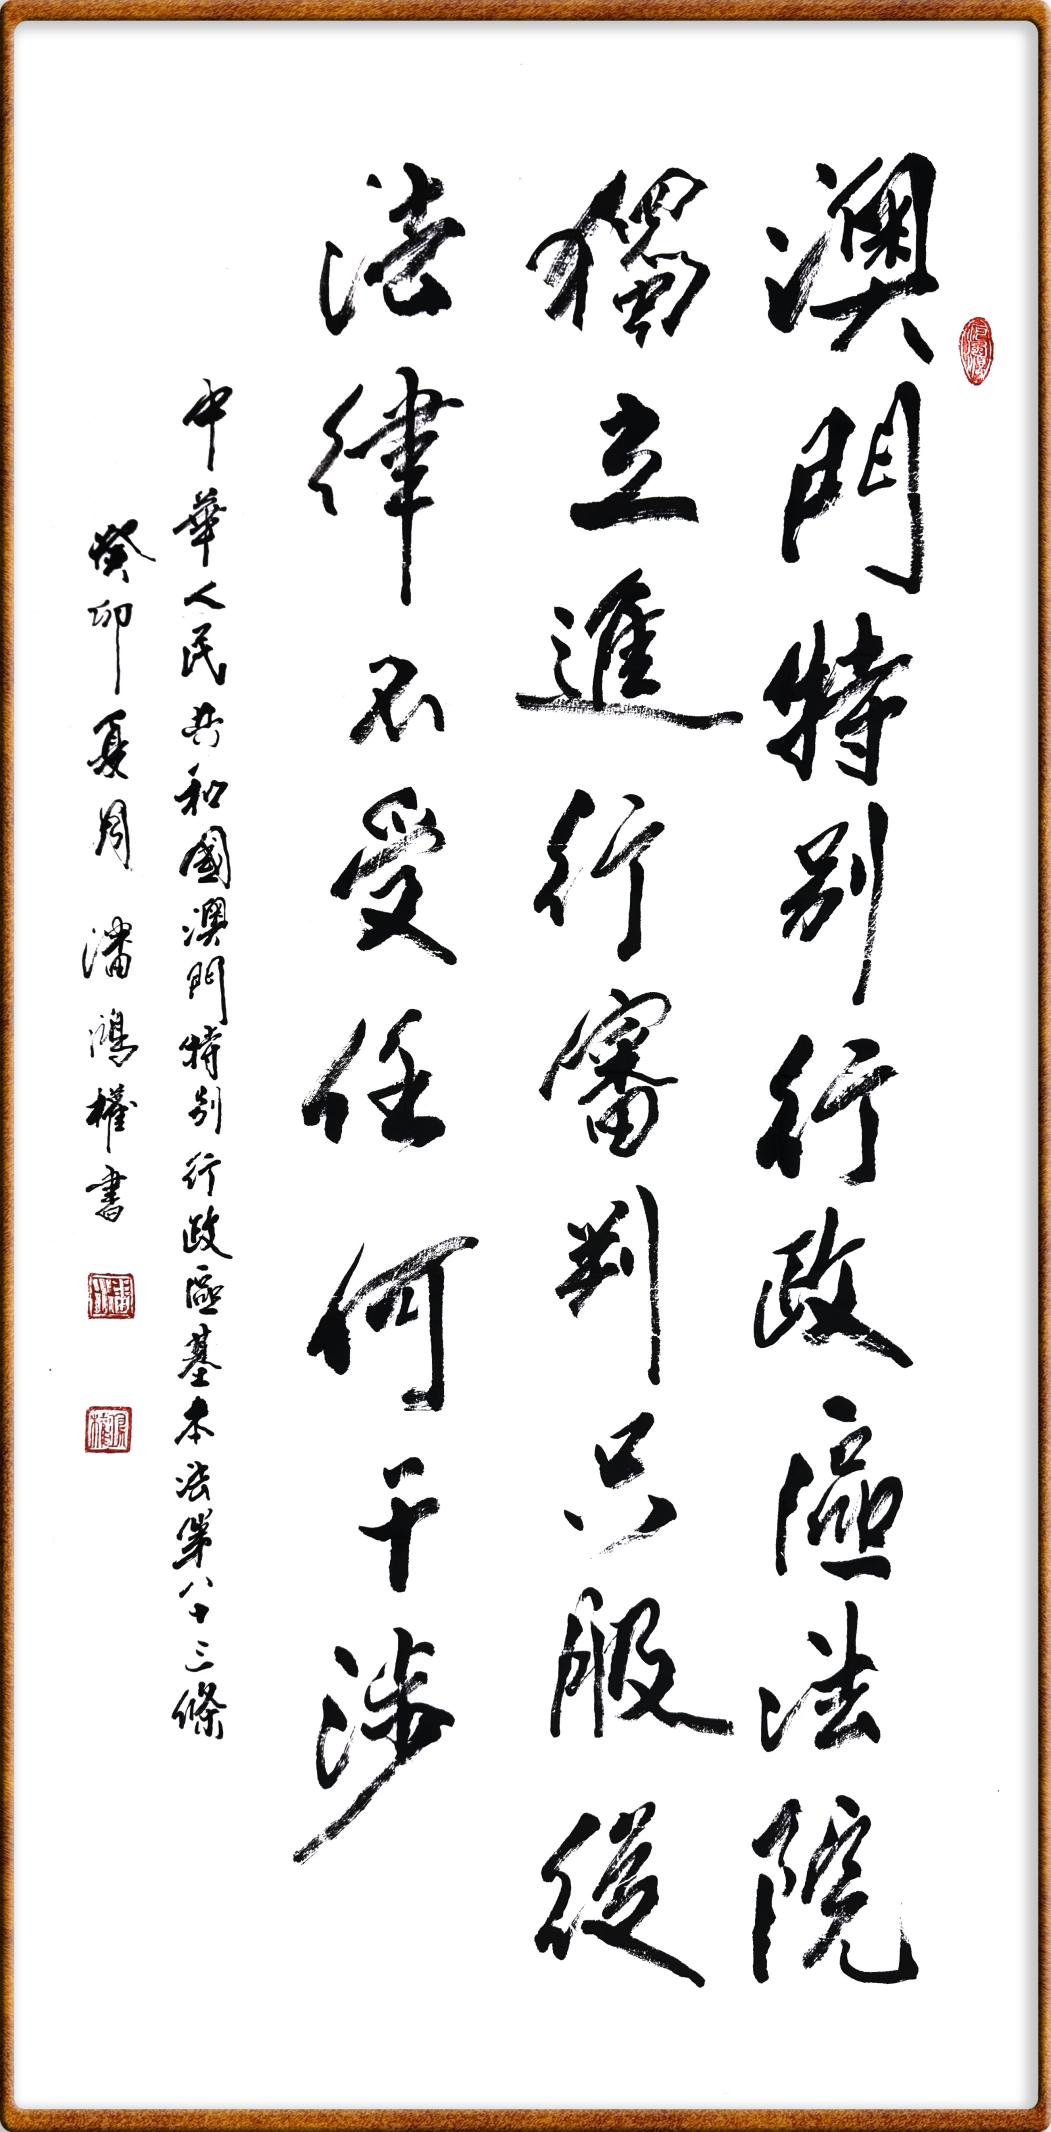 澳門特别行政區法院
獨立進行審判只服從
法律不受任何干涉
中華人民共和國澳門特别行政區基本法第八十三條
癸卯夏月 潘鴻權書